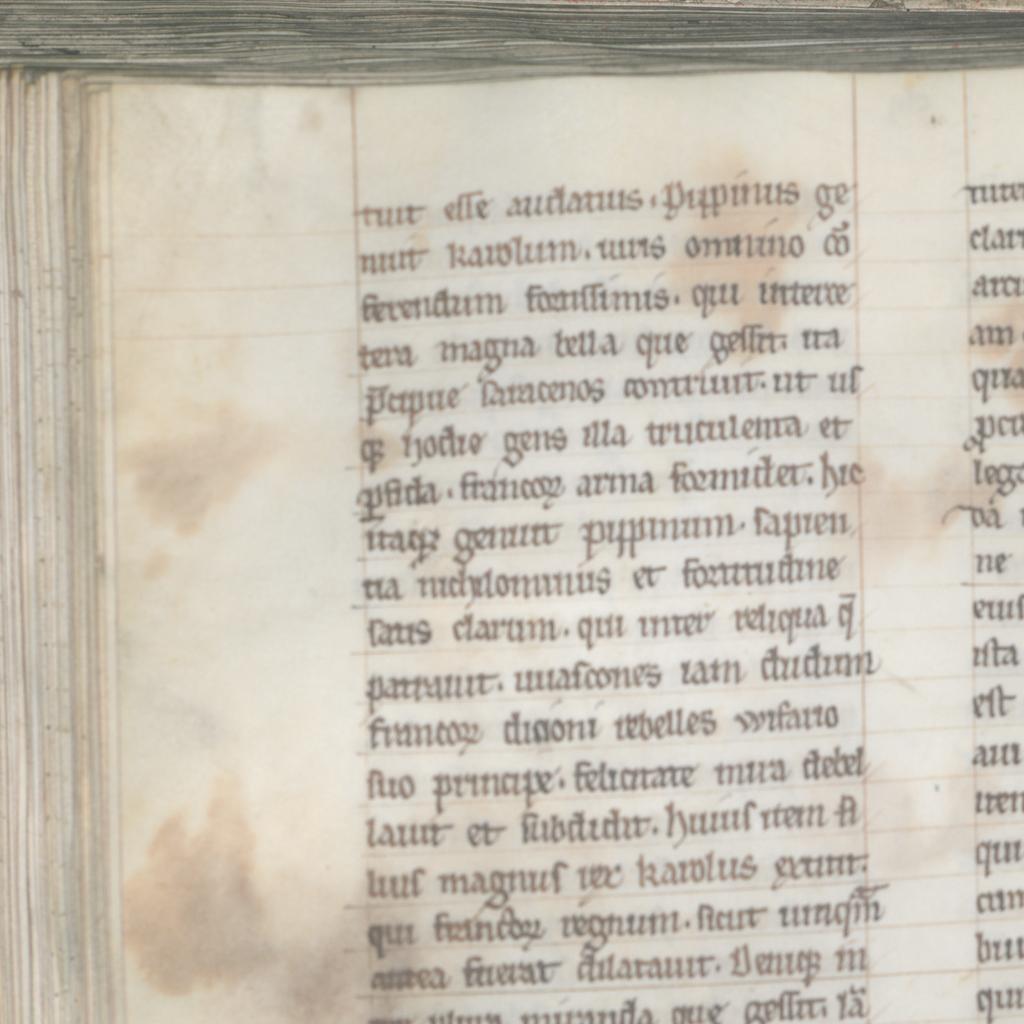 tuit esse audatius. Pippinus ge
nuit karolum. uiris omnino cō
ferendum fortissimis. qui intere
tera magna bella que gessit. ita
p̄cipue saracenos contriuit. ut us
qꝫ hodie gens illa truculenta et
ꝑfida. francoꝝ arma formidet. hic
itaqꝫ genuit pippinum. sapien
tia nichilominus et fortitudine
satis clarum. qui inter reliqua q̄
patrauit. uuascones iam dudum
francoꝝ dicioni rebelles wifario
suo principe. felicitate mira debel
lauit et subdidit. huius item fi
lius magnus rex karolus extitit.
qui francoꝝ regnum. sicut umqm̄
antea fuerat dilatauit. Deniqꝫ in
miranda que gessit. iā
tuter
clar
arcu
am
qua
legō
ne
eius
ista
est
aui
item
qui
cum
buit
qui